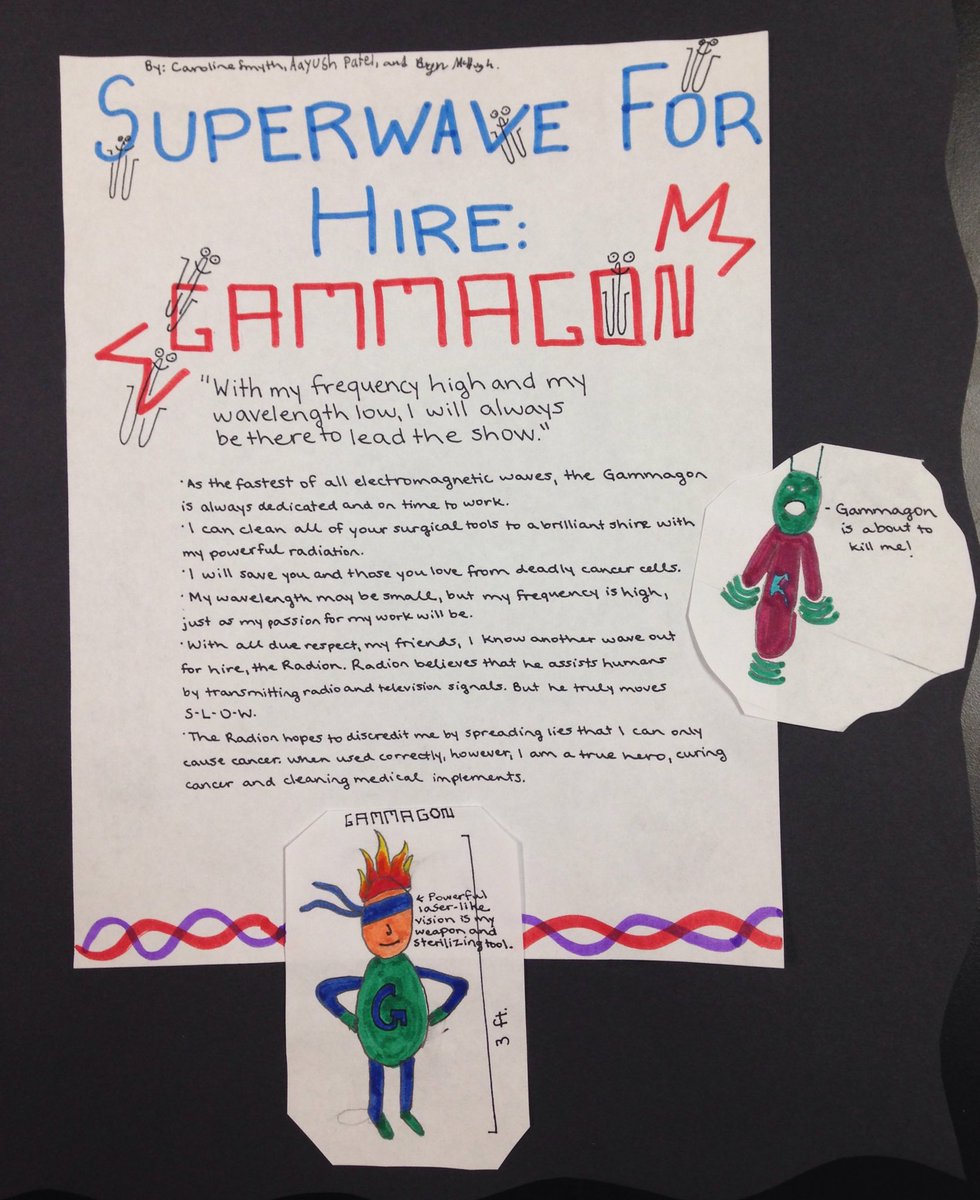 By: Caroline Smyth, Aayush Patel, and Bryn McHugh.
SUPERWAVE FOR
HIRE:
GAMMAGON
"With my frequency high and my
wavelength low, I will always
be there to lead the show."
·As the fastest of all electromagnetic waves, the Gammagon
is always dedicated and on time to work.
·I can clean all of your surgical tools to a brilliant shire with
my powerful radiation.
·I will save you and those you love from deadly cancer cells.
·My wavelength may be small, but my frequency is high,
just as my passion for my work will be.
·With all due respect, my friends, I know another wave out
for hire, the Radion. Radion believes that he assists humans
by transmitting radio and television signals. But he truly moves
S-L-O-W.
·The Radion hopes to discredit me by spreading lies that I can only
cause cancer. when used correctly, however, I am a true hero, curing
cancer and cleaning medical implements.
- Gammagon
is about to
kill me!
R
GAMMAGON
← Powerful
laser-like
vision is my
weapon and
sterilizing tool.
G
3 ft.